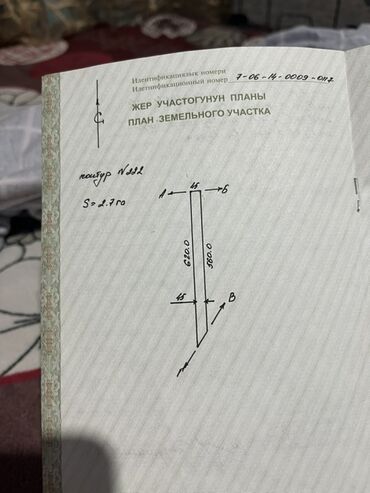 Идентификациялык номери
Идентификационный номер 7-06-14-0009-0117
ЖЕР УЧАСТОГУНУН ПЛАНЫ
ПЛАН ЗЕМЕЛЬНОГО УЧАСТКА
С
контур №222
S= 2.7 га
А 45 Б
620.0 560.0
45 В
Г